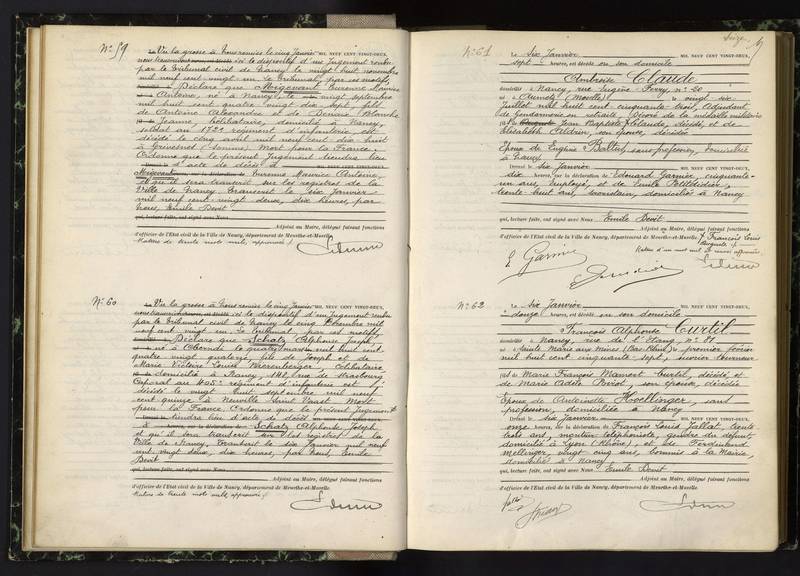 N° 59
Le Vu la grosse à Nous remise le cinq Janvier MIL NEUF CENT VINGT-DEUX,
par le Tribunal civil de Nancy le vingt huit novembre
mil neuf cent vingt un le Tribunal, par ces motifs,
Déclare que Morgevant Turenne Maurice
Antoine, né à Nancy, le vingt septembre
mil huit cent quatre vingt dix sept, fils
de Antoine Alexandre et de Blanche
Jeanne, célibataire, domicilié à Nancy,
soldat au 172e régiment d'infanterie, est
décédé le cinq avril mil neuf cent dix-huit
à Grivesnes (Somme) Mort pour la France.
Ordonne que le présent Jugement tiendra lieu
d'acte de décès à
Turenne Maurice Antoine,
et qu'il sera transcrit sur les registres de la
Ville de Nancy. Transcrit le six Janvier
mil neuf cent vingt deux, dix heures, par
Nous, Emile Devit
qui, lecture faite, ont signé avec Nous
Adjoint au Maire, délégué faisant fonctions
d'officier de l'État civil de la Ville de Nancy, département de Meurthe-et-Moselle.
N° 60
Le Vu la grosse à Nous remise le cinq Janvier MIL NEUF CENT VINGT-DEUX,
et le dispositif d'un Jugement rendu
par le Tribunal civil de Nancy le cinq Décembre mil
neuf cent vingt un le Tribunal, par ces motifs,
Déclare que Schatz Alphonse Joseph,
né à Obernai le quatre mars mil huit cent
quatre vingt quatorze, fils de Joseph et de
Marie Victoire Louise célibataire
domicilié à Nancy, 148, rue de Strasbourg
Caporal au 405e régiment d'infanterie est
décédé le vingt huit septembre mil neuf
cent quinze à Neuville Saint Vaast Mort
pour la France. Ordonne que le présent Jugement
tiendra lieu d'acte de décès
à Schatz Alphonse Joseph
et qu'il sera transcrit sur les registres de la
Ville de Nancy, Transcrit le six Janvier mil neuf
cent vingt deux, dix heures, par Nous, Emile
Devit
qui, lecture faite, ont signé avec Nous
Adjoint au Maire, délégué faisant fonctions
d'officier de l'État civil de la Ville de Nancy, département de Meurthe-et-Moselle.
N° 61
Le Six Janvier MIL NEUF CENT VINGT-DEUX,
sept heures, est décédé en son domicile
Ambroise Claude
domicilié à Nancy, rue Eugène Ferry, n° 20
né à Aumetz (Moselle) le vingt six
Juillet mil huit cent cinquante trois, Adjudant
de Gendarmerie en retraite, Décoré de la médaille militaire
fils de Jean Baptiste Claude, décédé, et de
Elisabeth son épouse, décédée
Epoux de Eugénie sans profession, domiciliée
à Nancy
Dressé le six Janvier
dix heures, sur la déclaration de Edouard Garnier, cinquante
un ans, employé, et de Emile Petitdidier,
trente huit ans, domiciliés à Nancy
qui, lecture faite, ont signé avec Nous Emile Devit
Adjoint au Maire, délégué faisant fonctions
d'officier de l'État civil de la Ville de Nancy, département de Meurthe-et-Moselle.
François Louis
E Garnier
N° 62
Le Six Janvier MIL NEUF CENT VINGT-DEUX,
douze heures, est décédé en son domicile
François Alphonse Curtil
domicilié à Nancy, rue de l'Etang, n° 81
né à Sainte Marie aux Mines (Bas Rhin) le premier février
mil huit cent cinquante sept, ouvrier
fils de Marie François Mansuet Curtil, décédé et
de Marie Adèle son épouse, décédée
Epoux de Antoinette Hoellinger, sans
profession, domiciliée à Nancy
Dressé le six Janvier
onze heures, sur la déclaration de François Louis Jallat, trente
trois ans, monteur téléphoniste, gendre du défunt
domicilié à Lyon (Rhône), et de Ferdinand
Mellinger, vingt cinq ans, commis à la Mairie,
domiciliés à Nancy
qui, lecture faite, ont signé avec Nous Emile Devit
Adjoint au Maire, délégué faisant fonctions
d'officier de l'État civil de la Ville de Nancy, département de Meurthe-et-Moselle.